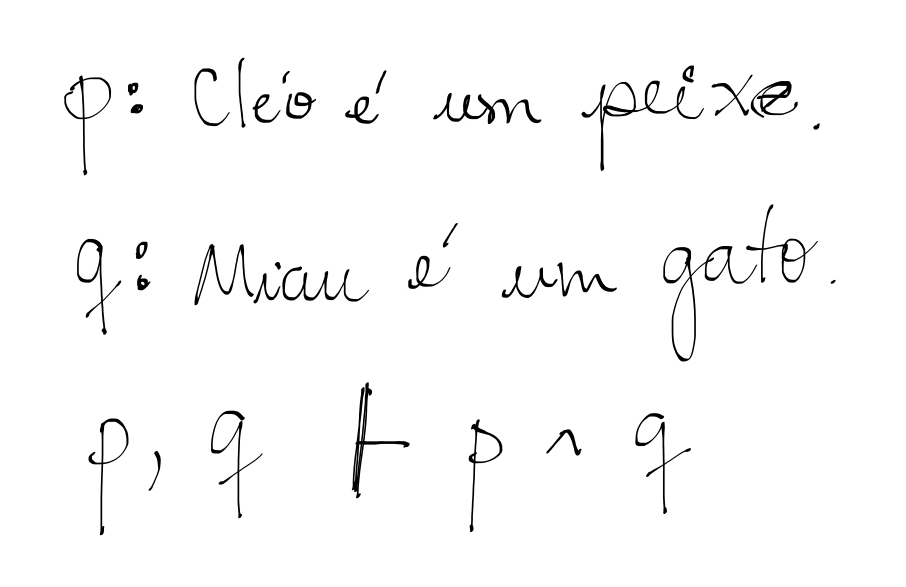 p: Cléo é um peixe.
q: Miau é um gato.
p, q ⊢ p ∧ q